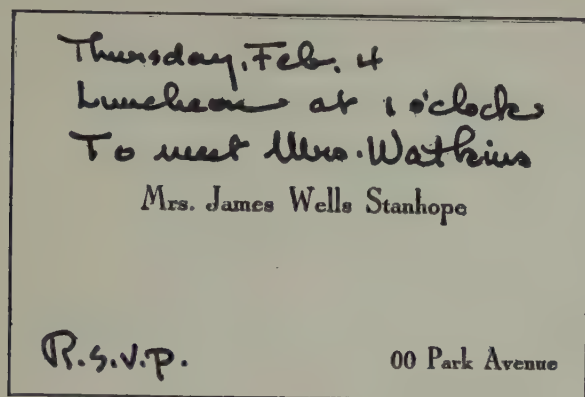 Thursday, Feb. 4
Luncheon at 1 o'clock
To meet Mrs. Watkins
Mrs. James Wells Stanhope
R.s.v.p.
00 Park Avenue